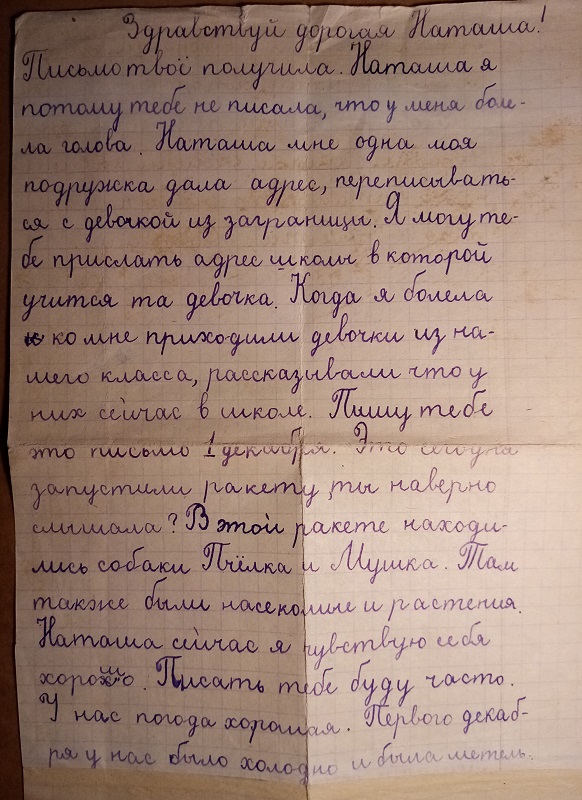 Здравствуй дорогая Наташа!
Письмо твоё получила. Наташа я
потому тебе не писала, что у меня боле-
ла голова. Наташа мне одна моя
подружка дала адрес, переписывать-
ся с девочкой из заграницы. Я могу те-
бе прислать адрес школы в которой
учится та девочка. Когда я болела
ко мне приходили девочки из на-
шего класса, рассказывали что у
них сейчас в школе. Пишу тебе
это письмо 1 декабря. Это сегодня
запустили ракету, ты наверно
слышала? В этой ракете находи-
лись собаки Пчёлка и Мушка. Там
также были насекомые и растения.
Наташа сейчас я чувствую себя
хорошо. Писать тебе буду часто.
У нас погода хорошая. Первого декаб-
ря у нас было холодно и была метель.